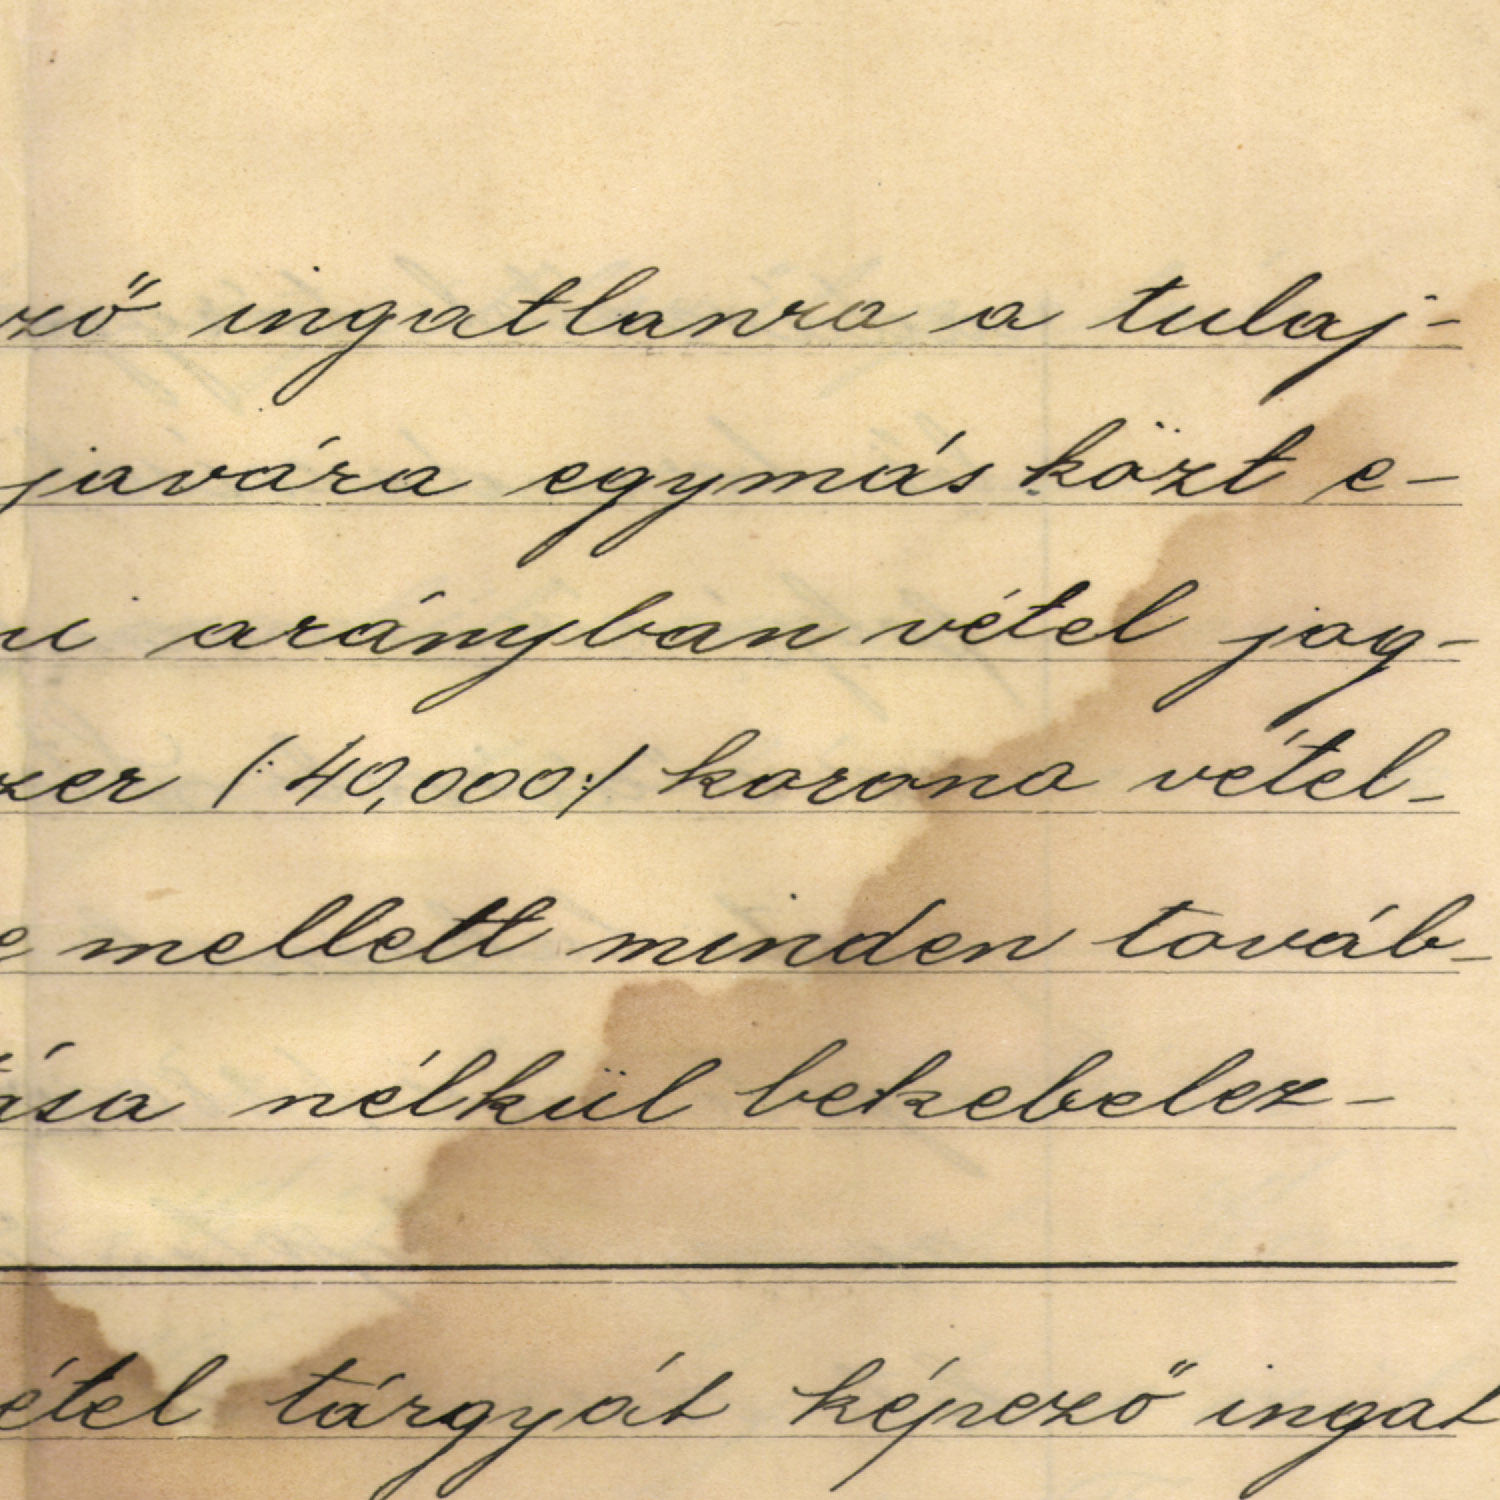 ző ingatlanra a tulaj-
javára egymás közt e-
ni arányban vétel jog-
zer (:40,000:) korona vétel-
e mellett minden továb-
ása nélkül bekebelez-
étel tárgyát képező ingat